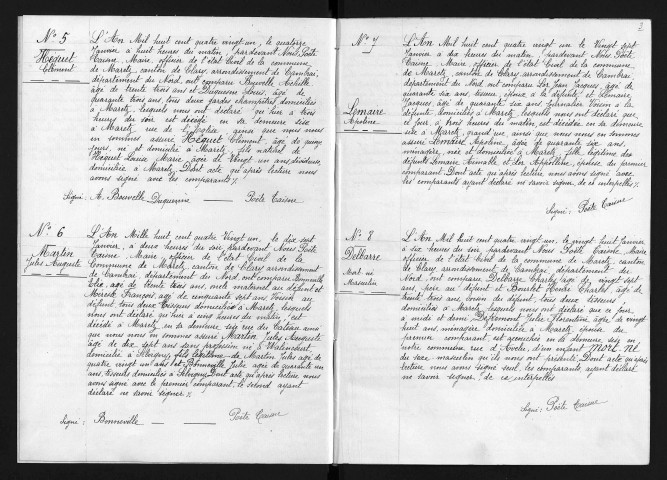 N° 5
Héquet
Clément
L'An Mil huit cent quatre vingt un, le quatorze
Janvier à huit heures du matin, pardevant Nous Poste
Caisne, Maire, officier de l'état Civil de la commune
de Maretz, canton de Clary, arrondissement de Cambrai,
département du Nord, ont comparu Achille
âgé de trente trois ans et Duquenne Louis, âgé de
quarante trois ans, tous deux gardes champêtres, domiciliés
à Maretz, lesquels nous ont déclaré qu'hier à trois
heures du soir est décédé en sa demeure sise
à Maretz, rue de l'Eglise, ainsi que nous nous
en sommes assuré Héquet Clément, âgé de quinze
jours, né et domicilié à Maretz, fils naturel de
Héquet Louise Marie, âgée de Vingt un ans,
domiciliée à Maretz. Dont acte qu'après lecture nous
avons signé avec les comparants.
Signé: A. Duquenne — Poste Caisne
N° 6
Martin
Jules Auguste
L'An Mille huit cent quatre Vingt un, le dix sept
Janvier, à deux heures du soir pardevant Nous Poste
Caisne, Maire officier de l'état Civil de la
Commune de Maretz, canton de Clary, arrondissement
de Cambrai, département du Nord, ont comparu Bonneville
Elie, âgé de trente trois ans, oncle maternel au défunt et
François, âgé de cinquante sept ans Voisin au
défunt, tous deux tisseurs domiciliés à Maretz, lesquels
nous ont déclaré qu'hier à cinq heures du matin, est
décédé à Maretz, en sa demeure, sise rue du Cateau ainsi
que nous nous en sommes assuré Martin Jules Auguste
âgé de dix sept ans sans profession né à Walincourt
domicilié à fils légitime de Martin Jules âgé de
quatre vingt un ans et Bonneville Julie âgée de quarante un
ans, tisseuls domiciliés à Dont acte qu'après lecture nous
avons signé avec le premier comparant, le second ayant
déclaré ne savoir signer.
Signé: Bonneville — Poste Caisne
2
N° 7
Lemaire
Apoline
L'An Mil huit cent quatre vingt un le Vingt sept
Janvier à dix heures du matin, pardevant Nous Poste
Caisne, Maire, officier de l'état Civil de la commune
de Maretz, canton de Clary, arrondissement de Cambrai
département du Nord, ont comparu Jean Jacques, âgé de
quarante six ans, époux à la défunte, et Lemaire
Jacques âgé de quarante six ans, journalier Voisin à la
défunte domiciliés à Maretz, lesquels nous ont déclaré que
ce jour, à trois heures du matin, est décédée en sa demeure
sise à Maretz, grand rue, ainsi que nous nous en sommes
assuré Lemaire Apoline, âgée de quarante six ans,
ménagère, née et domiciliée à Maretz, fille légitime des
défunts Lemaire Aimable et Appolline, épouse du premier
comparant. Dont acte qu'après lecture nous avons signé avec
les comparants ayant déclaré ne savoir signer de ce interpellés.
Signé: Poste Caisne
N° 8
Delbarre
Mort né
Masculin
L'An Mil huit cent quatre vingt un, le vingt huit Janvier
à dix heures du soir pardevant Nous Poste Caisne, Maire
officier de l'état Civil de la commune de Maretz, canton
de Clary arrondissement de Cambrai, département du
Nord, ont comparu Delbarre Charles, âgé de vingt sept
ans, père au défunt et Henri Charles, âgé de
trente trois ans, Voisin au défunt, tous deux tisseurs
domiciliés à Maretz, lesquels nous ont déclaré que ce jour
à midi et demi Julie Florentine, âgée de vingt
huit ans, ménagère domiciliée à Maretz, épouse du
premier comparant, est accouchée en sa demeure, sise en
notre commune rue d'un enfant Mort Né
du sexe masculin qu'ils nous ont présenté, Dont acte qu'après
lecture nous avons signé seul, les comparants ayant déclaré
ne savoir signer de ce interpellés
Signé: Poste Caisne